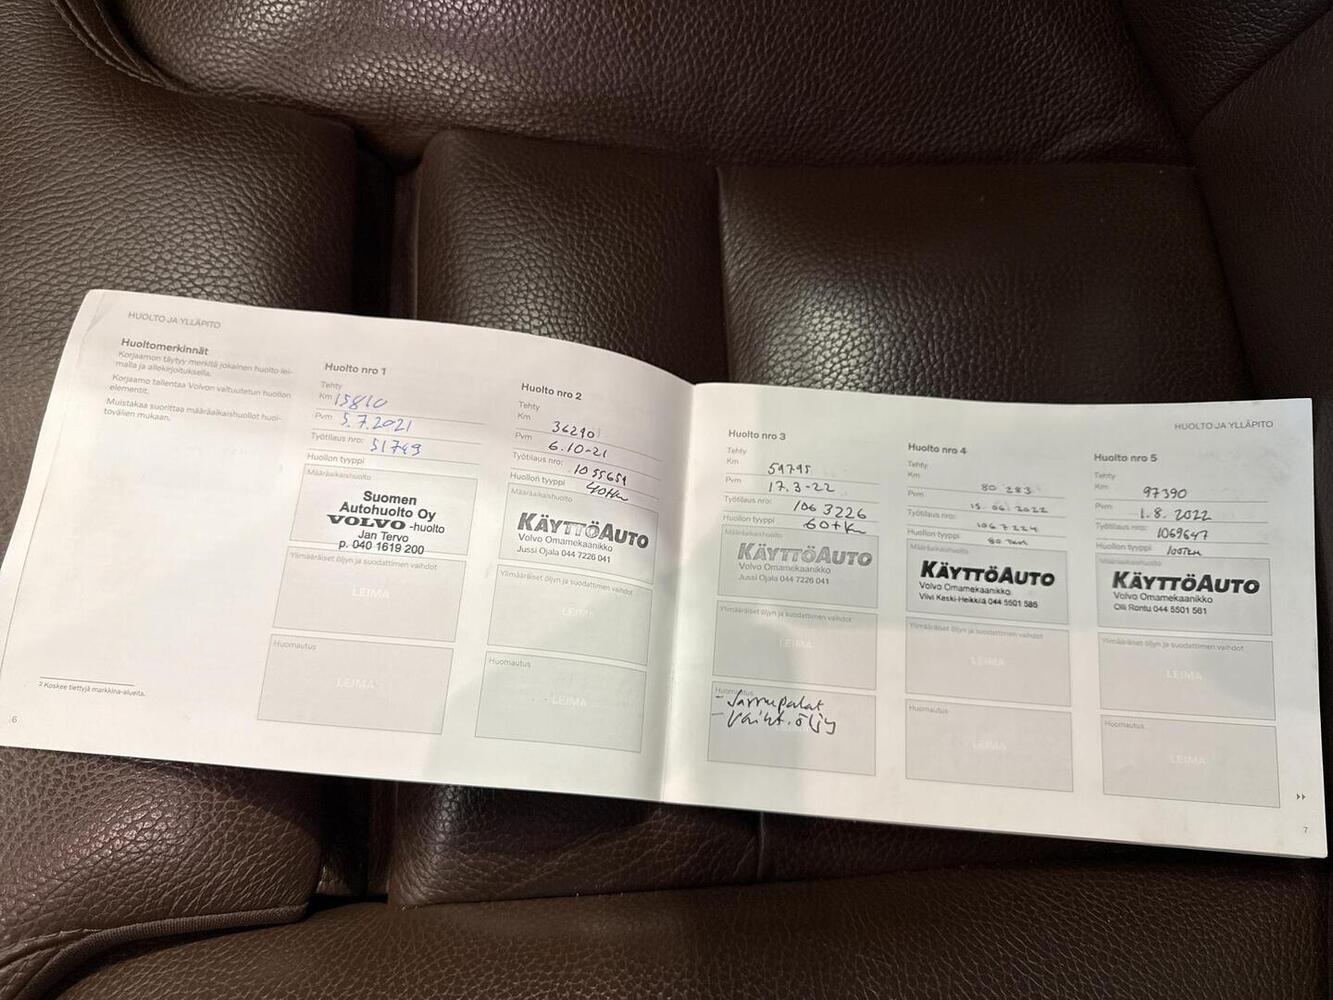 HUOLTO JA YLLÄPITO
Huoltomerkinnät
Korjaamon täytyy merkitä jokainen huolto lei-
malla ja allekirjoituksella.
Korjaamo tallentaa Volvon valtuutetun huollon
elementit.
Muistakaa suorittaa määräaikaishuollot huol-
tovälien mukaan.
2 Koskee tiettyjä markkina-alueita.
6
Huolto nro 1
Tehty
Km 15810
Pvm 5.7.2021
Työtilaus nro: 51749
Huollon tyyppi
Määräaikaishuolto
Suomen
Autohuolto Oy
VOLVO -huolto
Jan Tervo
p. 040 1619 200
Ylimääräiset öljyn ja suodattimen vaihdot
LEIMA
Huomautus
LEIMA
Huolto nro 2
Tehty
Km 36290
Pvm 6.10-21
Työtilaus nro: 1055659
Huollon tyyppi 40tkm
Määräaikaishuolto
KÄYTTÖAUTO
Volvo Omamekaanikko
Jussi Ojala 044 7226 041
Ylimääräiset öljyn ja suodattimen vaihdot
LEIMA
Huomautus
LEIMA
HUOLTO JA YLLÄPITO
Huolto nro 3
Tehty
Km 59795
Pvm 17.3-22
Työtilaus nro: 106 3226
Huollon tyyppi 60tkm
Määräaikaishuolto
KÄYTTÖAUTO
Volvo Omamekaanikko
Jussi Ojala 044 7226 041
Ylimääräiset öljyn ja suodattimen vaihdot
LEIMA
Huomautus
- Jarrupalat
- Vaiht. öljy
Huolto nro 4
Tehty
Km 80 283
Pvm 15.06.2022
Työtilaus nro: 1067224
Huollon tyyppi 80 tkm
Määräaikaishuolto
KÄYTTÖAUTO
Volvo Omamekaanikko
Viivi Keski-Heikkilä 044 5501 585
Ylimääräiset öljyn ja suodattimen vaihdot
LEIMA
Huomautus
LEIMA
Huolto nro 5
Tehty
Km 97390
Pvm 1.8.2022
Työtilaus nro: 1069647
Huollon tyyppi 100tkm
Määräaikaishuolto
KÄYTTÖAUTO
Volvo Omamekaanikko
Olli Rontu 044 5501 561
Ylimääräiset öljyn ja suodattimen vaihdot
LEIMA
Huomautus
LEIMA
7